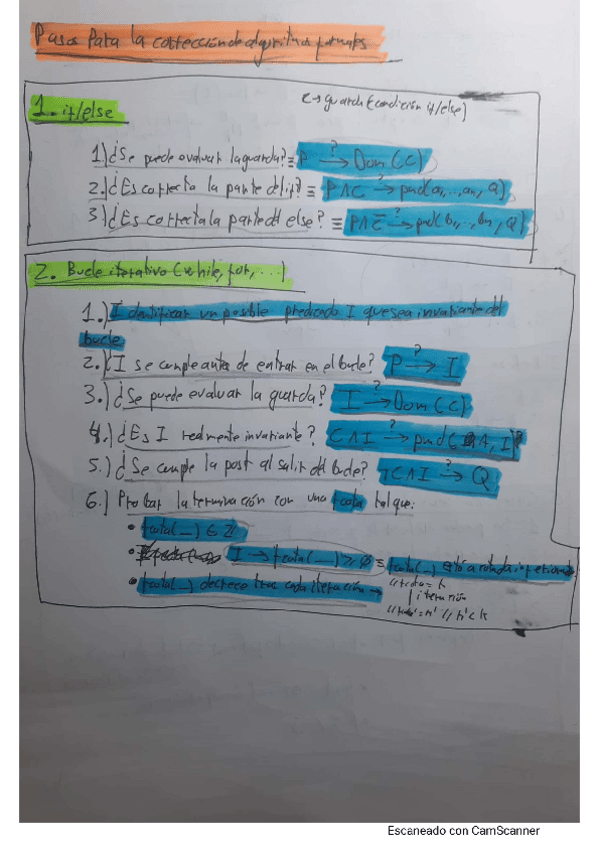 Pasos Para la corrección de algoritmos formales
C → guarda (condición if/else)
1. if/else
1) ¿Se puede evaluar la guarda? ≡ P →? Dom(C)
2.) ¿Es correcta la parte del if? ≡ P∧C →? pmd(a₁,...,aₙ, Q)
3) ¿Es correcta la parte del else? ≡ P∧C̅ →? pmd(b₁,...,bₙ, Q)
2. Bucle iterativo (while, for, ...)
1.) Identificar un posible predicado I que sea invariante del
bucle
2.) ¿I se cumple antes de entrar en el bucle? P →? I
3.) ¿Se puede evaluar la guarda? I →? Dom(C)
4.) ¿Es I realmente invariante? C∧I →? pmd(A, I)
5.) ¿Se cumple la post al salir del bucle? ¬C∧I →? Q
6.) Probar la terminación con una fcota tal que:
• fcota(_) ∈ ℤ
• I → fcota(_) ≥ 0 ≡ fcota(_) está acotada inferiormente
• fcota(_) decrece tras cada iteración →
iteración
k' < k
Escaneado con CamScanner